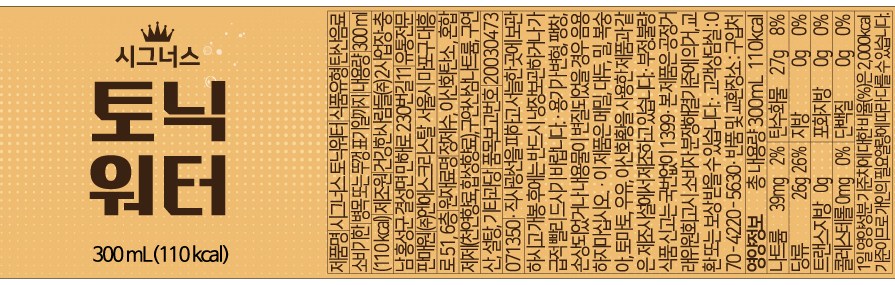 시그너스
토닉
워터
300 mL (110 kcal)
제품명 시그너스 토닉워터 식품유형 탄산음료
소비기한 병목 또는 뚜껑 표기일까지 내용량 300 ml
(110 kcal) 제조원 건강한사람들㈜2사업장: 충
남 홍성군 결성면 만해로 230번길 11 유통전문
판매원 ㈜엔에이스크리스탈 서울시 마포구 대흥
로 51, 6층 원재료명 정제수, 이산화탄소, 혼합
제제(천연향료, 합성향료), 구연산삼나트륨, 구연
산, 설탕, 기타과당 품목보고번호 20030473
071350 · 직사광선을 피하고 서늘한 곳에 보관
하시고 개봉 후에는 반드시 냉장보관하거나 가
급적 빨리 드시기 바랍니다. · 용기가 변형, 팽창,
손상되었거나 내용물이 변질되었을 경우 음용
하지 마십시오. · 이 제품은 메밀, 대두, 밀, 복숭
아, 토마토, 우유, 이산화황을 사용한 제품과 같
은 제조시설에서 제조하고 있습니다. · 부정불량
식품 신고는 국번없이 1399 · 본 제품은 공정거
래위원회고시 소비자분쟁해결기준에 의거, 교
환 또는 보상 받을 수 있습니다. · 고객상담실 : 0
70 - 4220 - 5630 · 반품 및 교환장소 : 구입처
영양정보 총 내용량 300mL 110kcal
나트륨 39mg 2% 탄수화물 27g 8%
당류 26g 26% 지방 0g 0%
트랜스지방 0g 포화지방 0g 0%
콜레스테롤 0mg 0% 단백질 0g 0%
1일 영양성분 기준치에 대한 비율(%)은 2,000kcal
기준이므로 개인의 필요 열량에 따라 다를 수 있습니다.